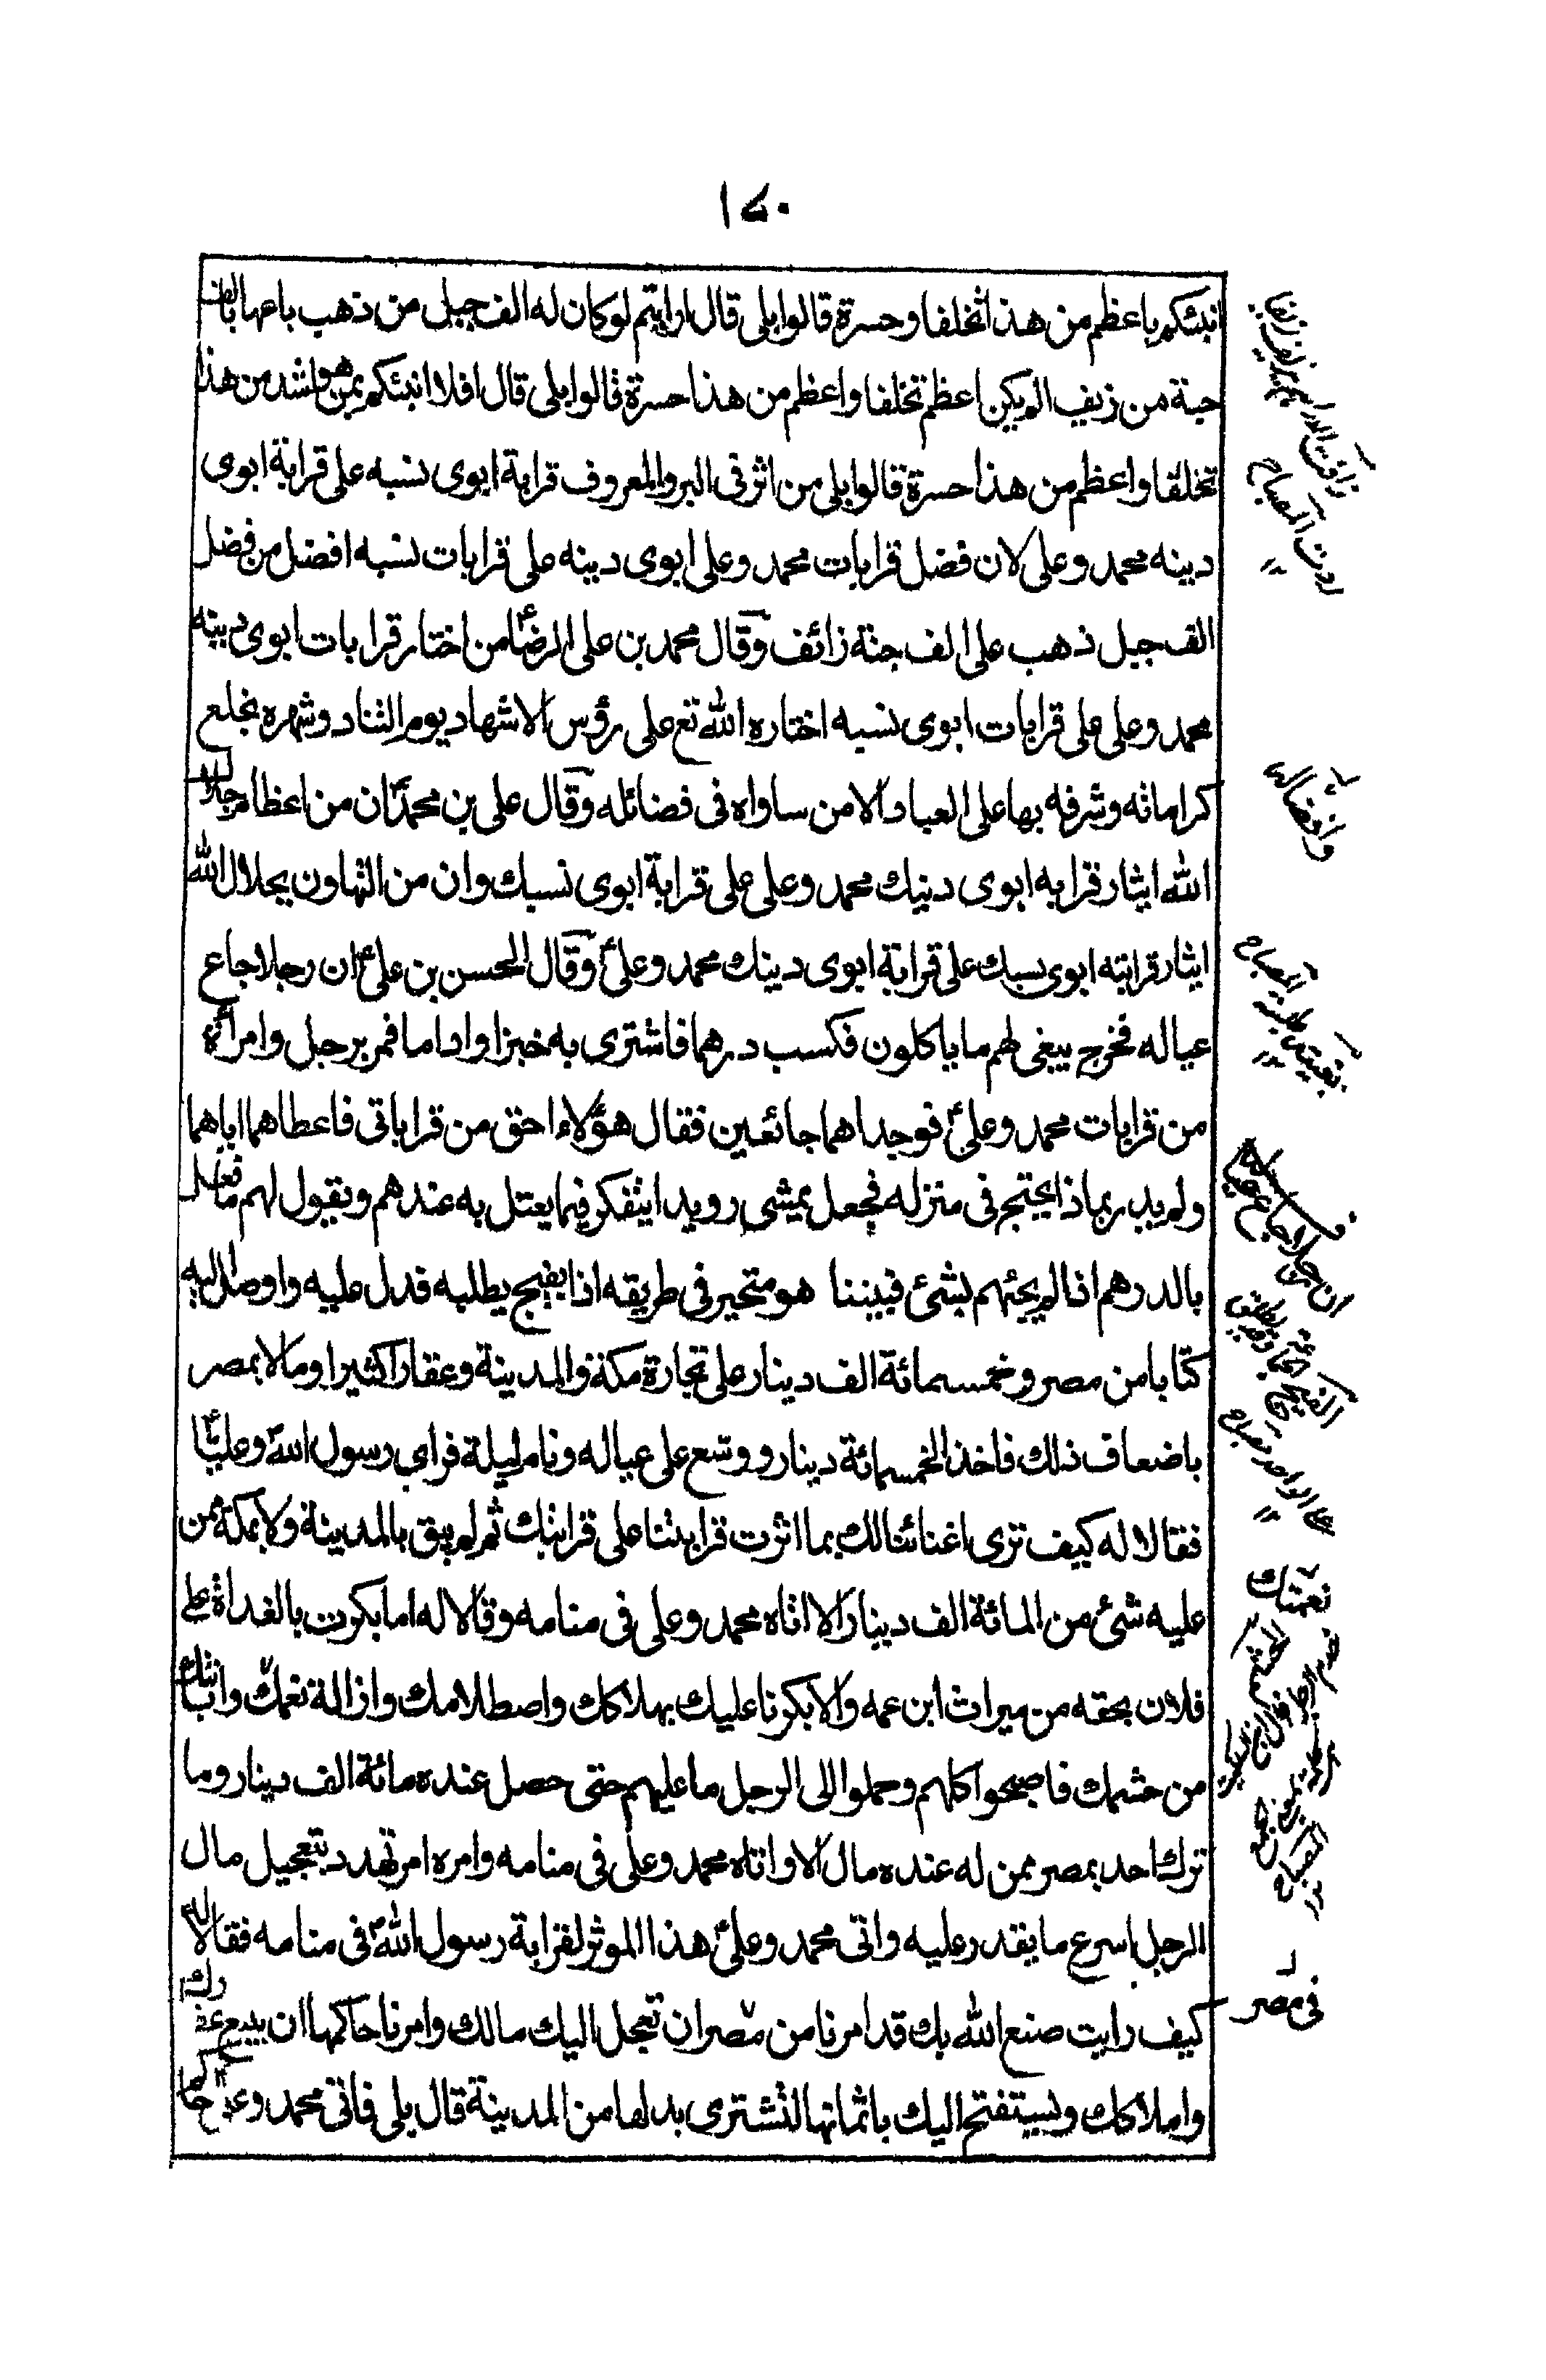 ١٤٠
انبئكم باعظم من هذا تخلفا وحسرة قالوا بلى قال ارايتم لو كان له الف جبل من ذهب باعها بالف
حبة من زيف الم يكن اعظم تخلفا واعظم من هذا حسرة قالوا بلى قال افلا انبئكم بمن هو اشد من هذا
تخلفا واعظم من هذا حسرة قالوا بلى من اثر فى البر والمعروف قرابة ابوى نسبه على قرابة ابوى
دينه محمد وعلى لان فضل قرابات محمد وعلى ابوى دينه على قرابات نسبه افضل من فضل
الف جبل ذهب على الف حبة زائف وقال محمد بن على الرضا من اختار قرابات ابوى دينه
محمد وعلى على قرابات ابوى نسبه اختاره الله تع على رؤس الاشهاد يوم التناد وشهره بخلع
كراماته وشرفه بها على العباد الا من ساواه فى فضائله وقال على بن محمد ان من اعظام جلال
الله ايثار قرابه ابوى دينك محمد وعلى على قرابة ابوى نسبك وان من التهاون بجلال الله
ايثار قرابته ابوى نسبك على قرابة ابوى دينك محمد وعلى وقال الحسن بن على ان رجلا جاع
عياله فخرج يبغى لهم ما ياكلون فكسب درهما فاشترى به خبزا واداما فمر برجل وامرأة
من قرابات محمد وعلى فوجداهما جائعين فقال هؤلاء احق من قراباتى فاعطاهما اياهما
ولم يدر بماذا يحتج فى منزله فجعل يمشى رويدا يتفكر فيما يعتل به عندهم ويقول لهم ما فعل
بالدرهم اذا لم يجئهم بشئ فبيننا هو متحير فى طريقه اذا بفيج يطلبه فدل عليه واوصل اليه
كتابا من مصر وخمسمائة الف دينار على تجارة مكة والمدينة وعقارا كثيرا ومالا بمصر
باضعاف ذلك فاخذ الخمسمائة دينار ووسع على عياله ونام ليلة فراى رسول الله وعليا
فقالا له كيف ترى اغنائنا لك بما اثرت قرابتنا على قرابتك ثم لم يبق بالمدينة ولا بمكة ممن
عليه شئ من المائة الف دينار الا اتاه محمد وعلى فى منامه وقالا له اما بكرت بالغداة على
فلان بحقه من ميراث ابن عمه والا بكرنا عليك بهلاكك واصطلامك وازالة نعمك وابانتك
من حشمك فاصبحوا كلهم وحملوا الى الرجل ما عليهم حتى حصل عنده مائة الف دينار وما
ترك احد بمصر ممن له عنده مال الا واتاه محمد وعلى فى منامه وامره امر تهدد بتعجيل مال
الرجل اسرع ما يقدر عليه واتى محمد وعلى هذا الموثر لقرابة رسول الله فى منامه فقالا له
كيف رايت صنع الله بك قد امرنا من مصر ان تعجل اليك مالك وامرنا حاكمها ان يبيع عقارك
واملاكك ويستفتح اليك باثمانها لتشترى بدلها من المدينة قال بلى فاتى محمد وعلى حاكم
وافضاله
نعمتك
فى مصر